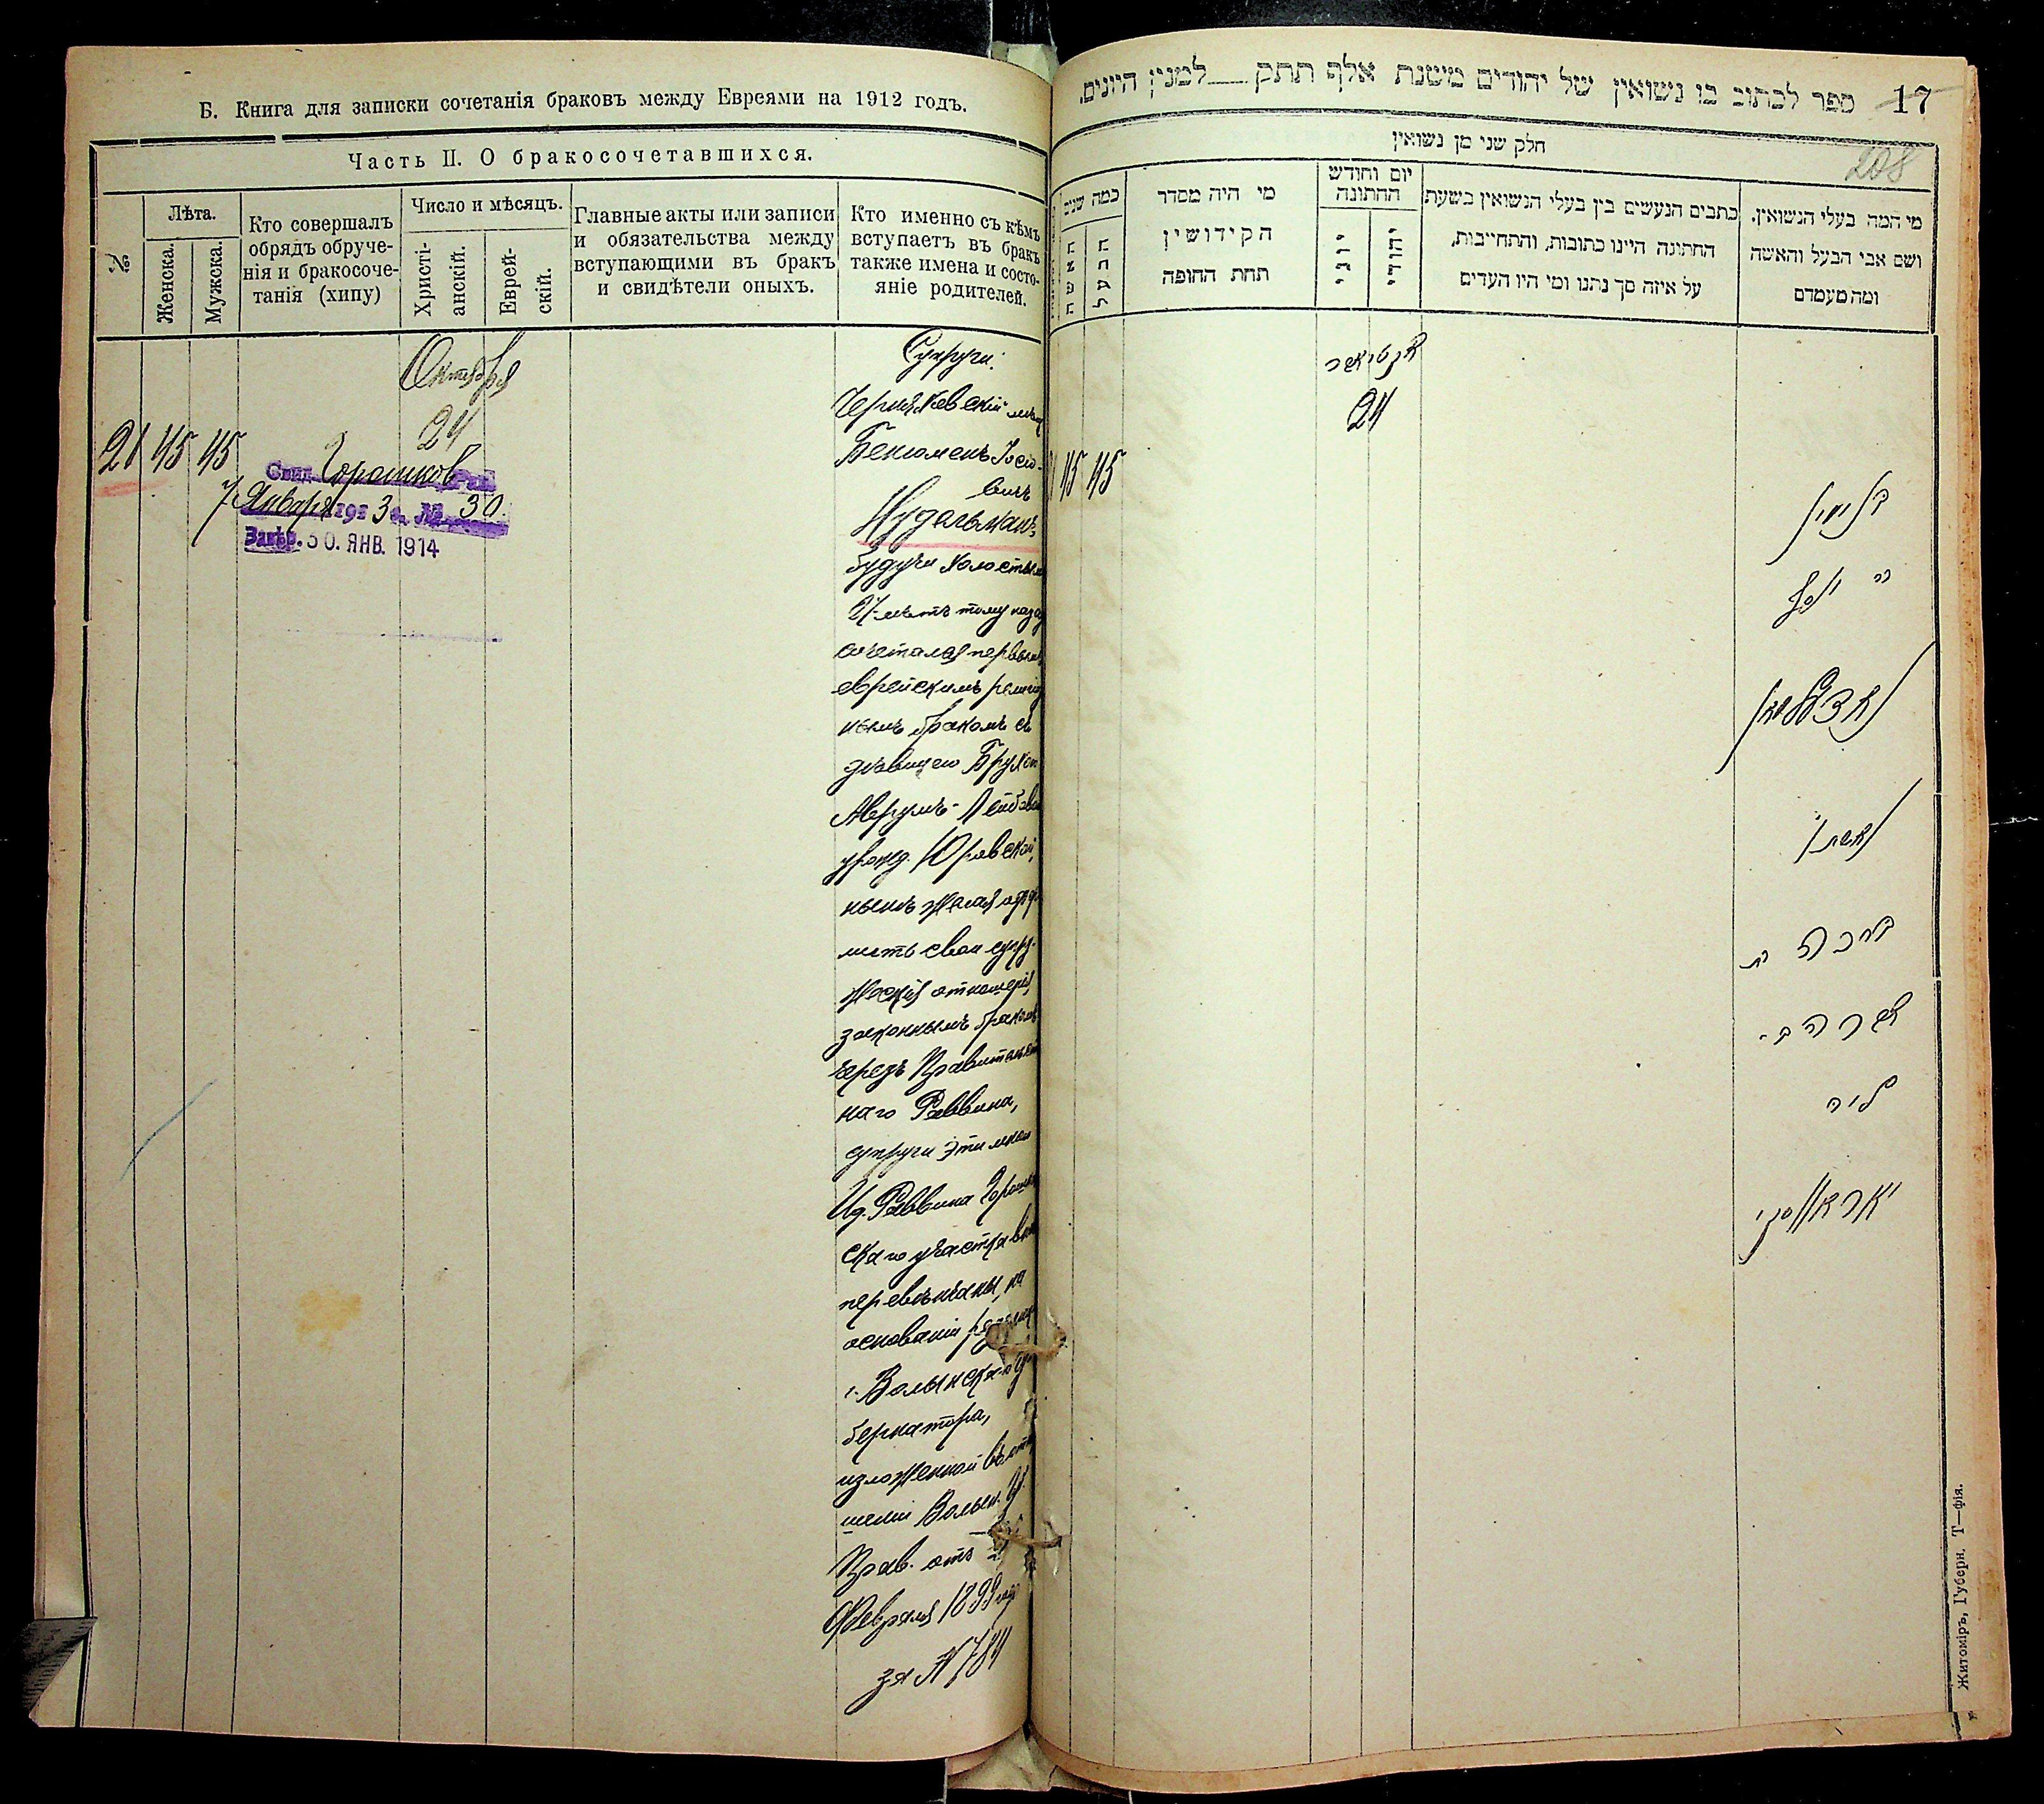 Б. Книга для записки сочетанія браковъ между Евреями на 1912 годъ.
Часть II. О бракосочетавшихся.
№
Лѣта.
Женска.
Мужска.
Кто совершалъ
обрядъ обруче-
нія и бракосоче-
танія (хипу)
Число и мѣсяцъ.
Христі-
анскій.
Еврей-
скій.
Главные акты или записи
и обязательства между
вступающими въ бракъ
и свидѣтели оныхъ.
Кто именно съ кѣмъ
вступаетъ въ бракъ
также имена и состо-
яніе родителей.
Октября
24
21 45 45
Свид. Горошков Рав.
7 Января 1913 г. № 30.
Завѣр. 30. ЯНВ. 1914
Супруги:
Черняховскій
Бенюменъ Іосіо-
вичъ
Нудельманъ,
будучи холостым
27 лѣтъ тому назад
сочетался первымъ
еврейскимъ религіоз
нымъ бракомъ съ
дѣвицею Брухою
Аврумъ-Лейбовн
урожд. Юровской,
нынѣ желая офор
мить свои супру-
жескія отношенія
законнымъ бракомъ
чрезъ Правительствен
наго Раввина,
супруги эти мною
И.д. Раввина Горошк
скаго участка
перевѣнчаны, на
основаніи
г. Волынскаго Гу
бернатора,
изложенной въ отно
шеніи Волын. Г.
Прав. отъ
Февраля 1899 года
за № 784
17
ספר לכתוב בו נשואין של יהודים משנת אלף תתק למנין היונים.
208
חלק שני מן נשואין
כמה שנים
האשה
הבעל
מי היה מסדר
הקידושין
תחת החופה
יום וחודש
החתונה
יוני
יהודי
כתבים הנעשים בין בעלי הנשואין בשעת
החתונה היינו כתובות, והתחייבות,
על איזה סך נתנו ומי היו העדים
מי המה בעלי הנשואין,
ושם אבי הבעל והאשה
ומה מעמדם
אקטיאבר
24
45 45
בנימין
ר יוסף
נודעלמאן
ברכה בת
אברהם
ליב
יאראווסקי
Житомiръ, Губерн. Т—фія.